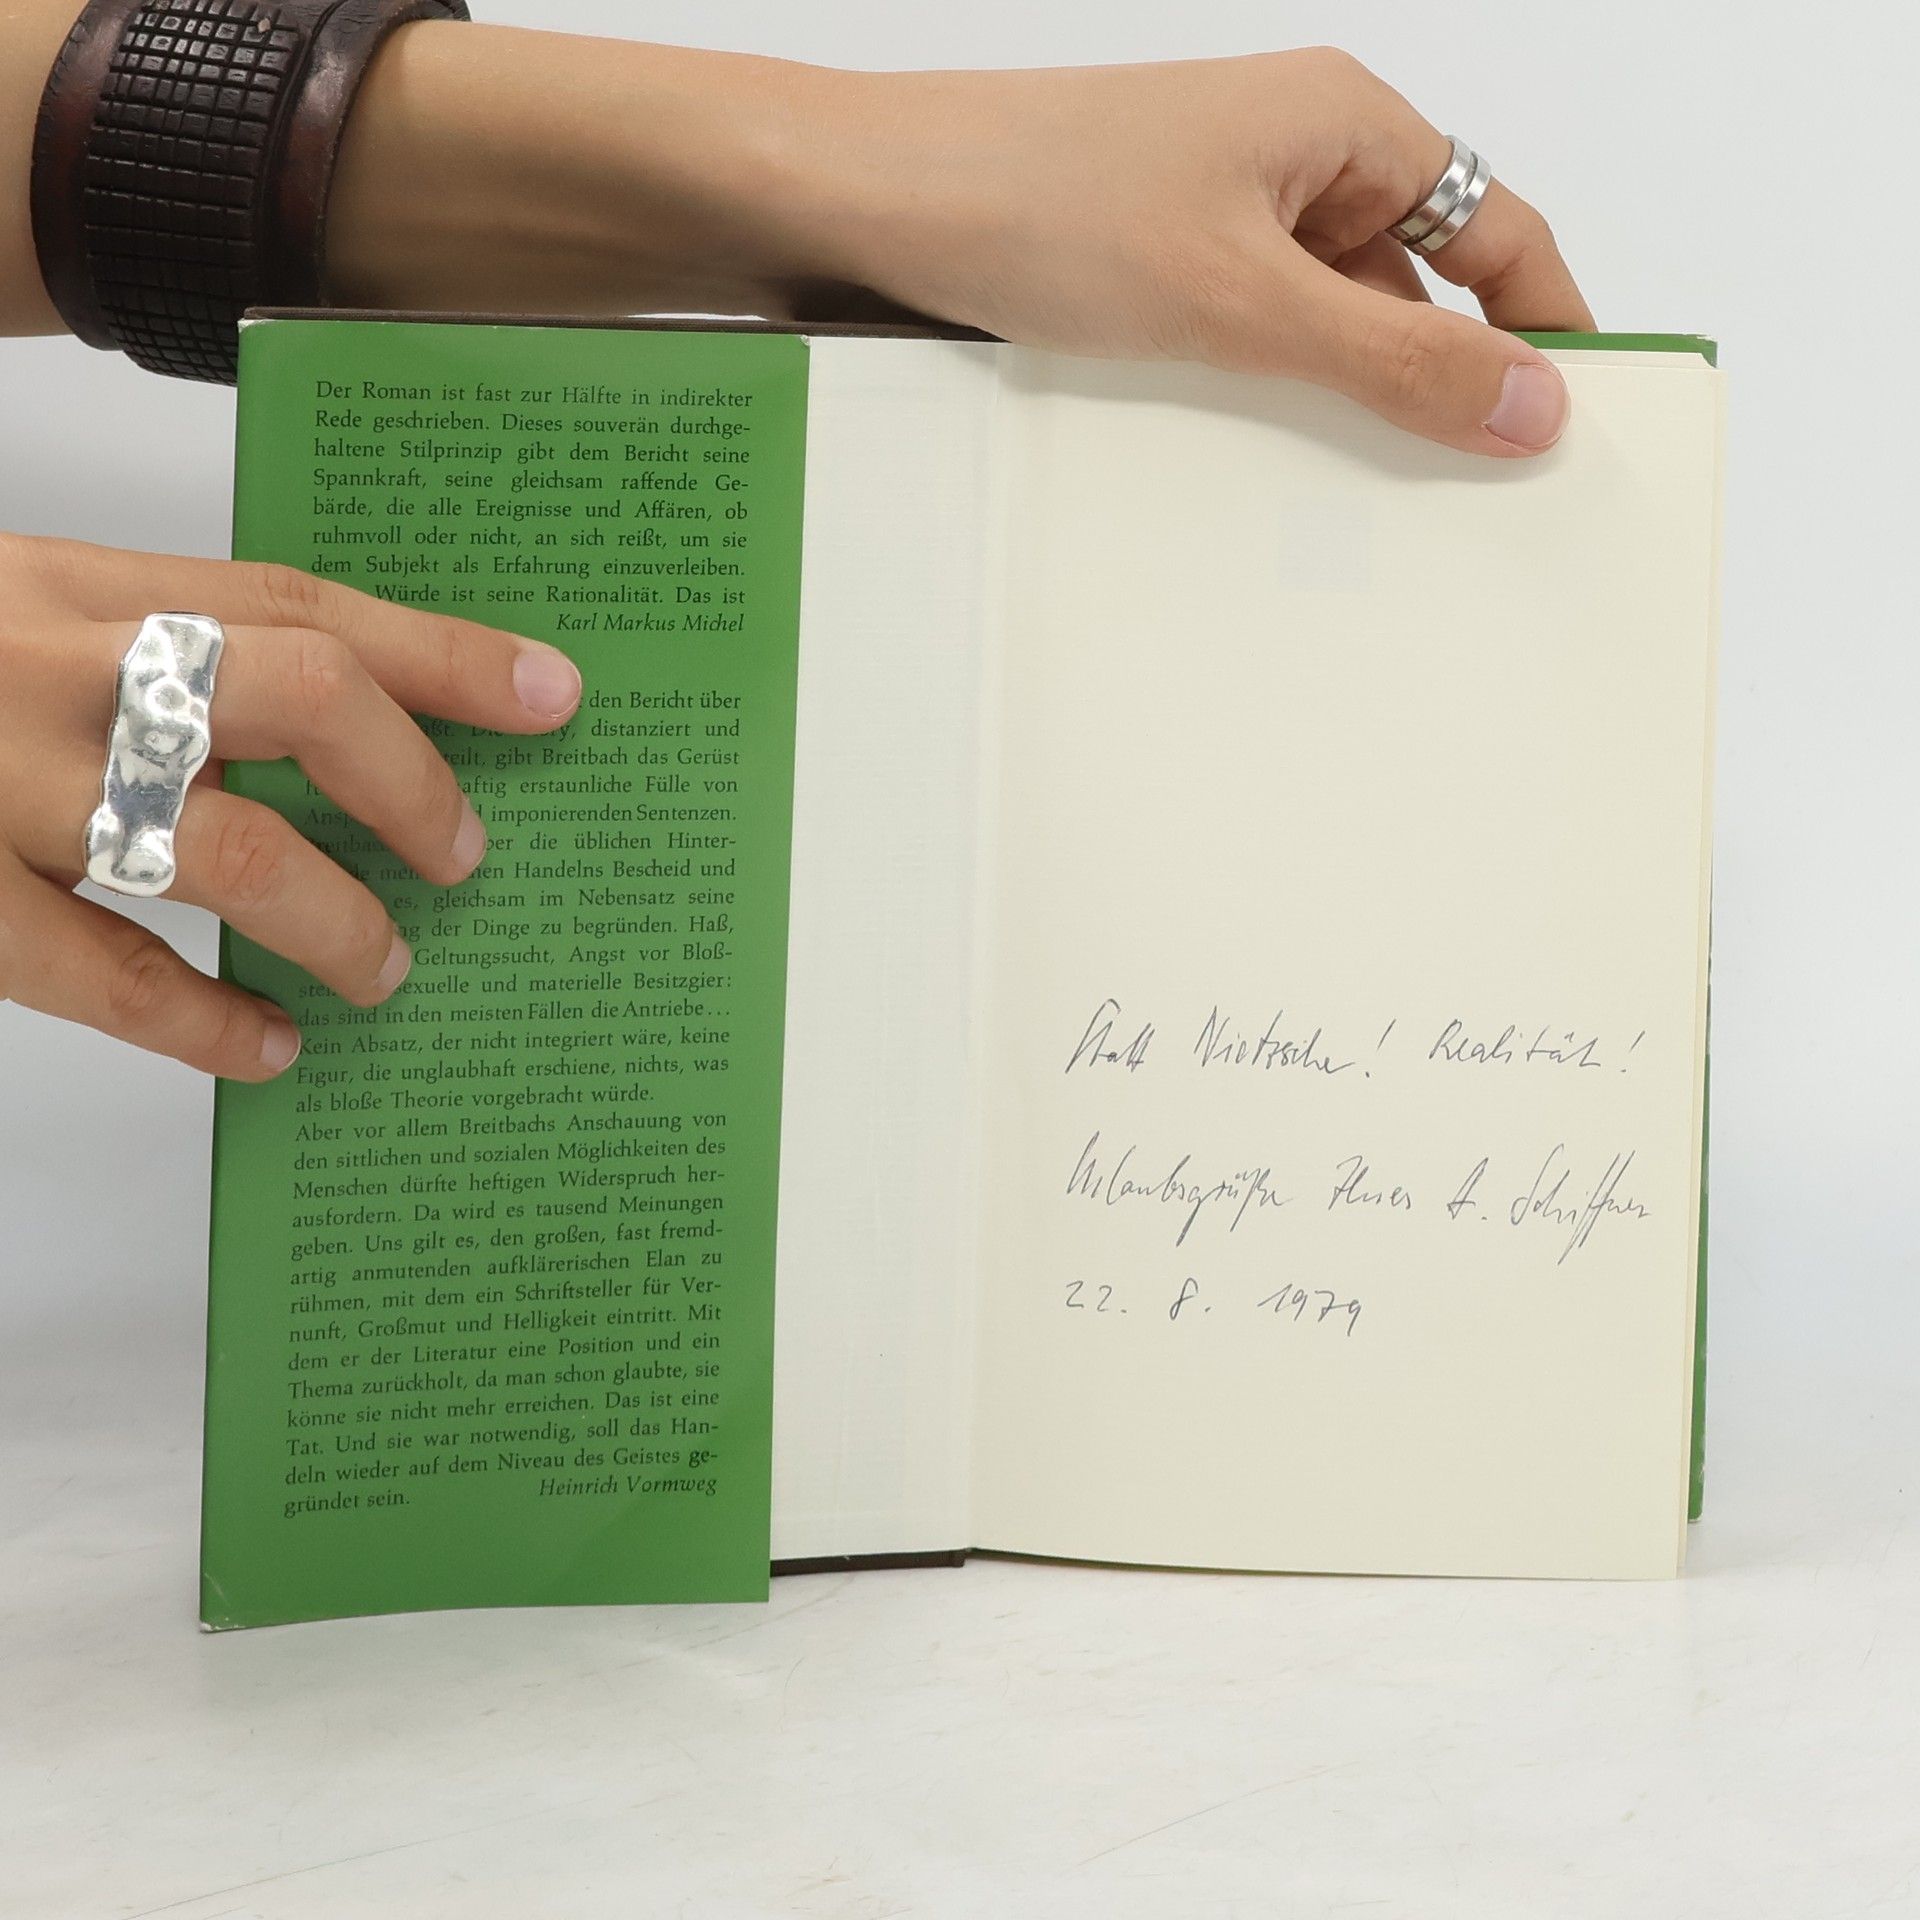 Der Roman ist fast zur Hälfte in indirekter
Rede geschrieben. Dieses souverän durchge-
haltene Stilprinzip gibt dem Bericht seine
Spannkraft, seine gleichsam raffende Ge-
bärde, die alle Ereignisse und Affären, ob
ruhmvoll oder nicht, an sich reißt, um sie
dem Subjekt als Erfahrung einzuverleiben.
Würde ist seine Rationalität. Das ist
Karl Markus Michel
den Bericht über
distanziert und
gibt Breitbach das Gerüst
erstaunliche Fülle von
imponierenden Sentenzen.
die üblichen Hinter-
Handelns Bescheid und
es, gleichsam im Nebensatz seine
der Dinge zu begründen. Haß,
Geltungssucht, Angst vor Bloß-
sexuelle und materielle Besitzgier:
das sind in den meisten Fällen die Antriebe...
Kein Absatz, der nicht integriert wäre, keine
Figur, die unglaubhaft erschiene, nichts, was
als bloße Theorie vorgebracht würde.
Aber vor allem Breitbachs Anschauung von
den sittlichen und sozialen Möglichkeiten des
Menschen dürfte heftigen Widerspruch her-
ausfordern. Da wird es tausend Meinungen
geben. Uns gilt es, den großen, fast fremd-
artig anmutenden aufklärerischen Elan zu
rühmen, mit dem ein Schriftsteller für Ver-
nunft, Großmut und Helligkeit eintritt. Mit
dem er der Literatur eine Position und ein
Thema zurückholt, da man schon glaubte, sie
könne sie nicht mehr erreichen. Das ist eine
Tat. Und sie war notwendig, soll das Han-
deln wieder auf dem Niveau des Geistes ge-
gründet sein.
Heinrich Vormweg
Statt Nietzsche! Realität!
Urlaubsgrüße Ihres A. Schiffner
22. 8. 1979